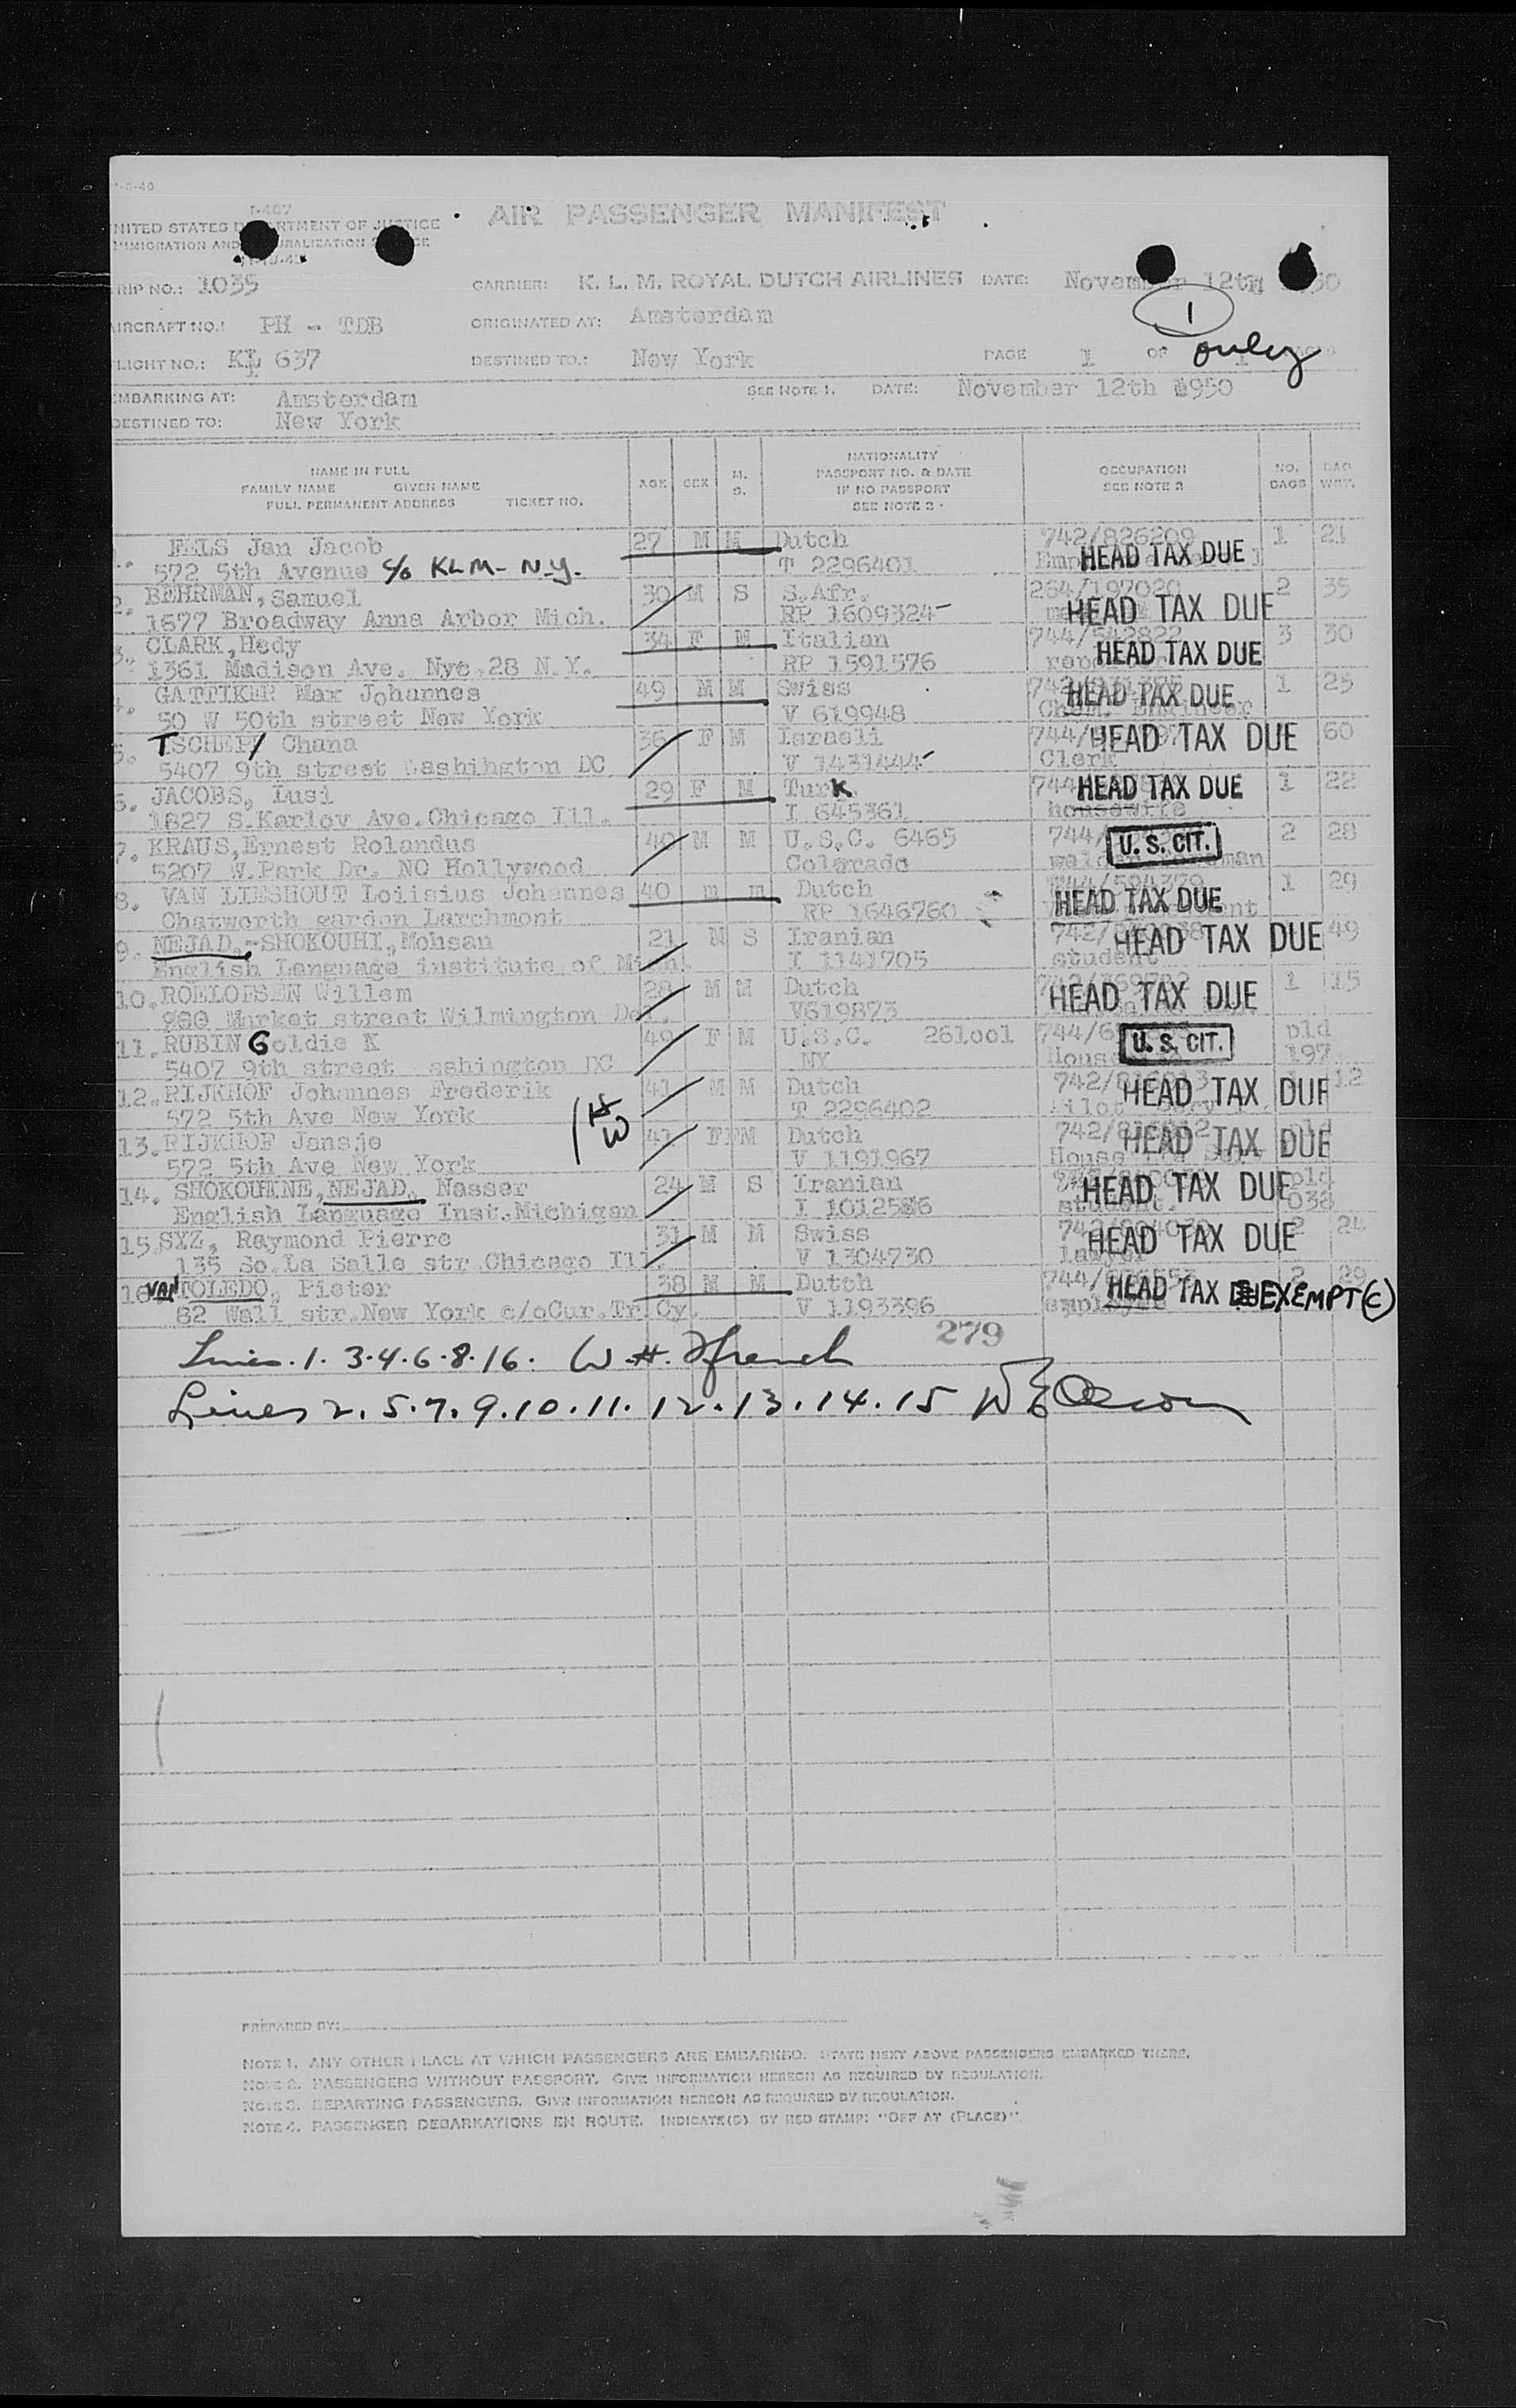 I-407
NITED STATES DEPARTMENT OF JUSTICE
AIR PASSENGER MANIFEST
RIP NO.: 1035 CARRIER: K. L. M. ROYAL DUTCH AIRLINES DATE: November 12th
IRCRAFT NO.: PH - TDB ORIGINATED AT: Amsterdam
1
LIGHT NO.: KL 637 DESTINED TO.: New York PAGE 1 OF 1 only
SEE NOTE 1. DATE: November 12th 1950
MBARKING AT: Amsterdam
DESTINED TO: New York
NAME IN FULL
FAMILY NAME GIVEN NAME
FULL PERMANENT ADDRESS TICKET NO.
AGE SEX M. S.
NATIONALITY
PASSPORT NO. & DATE
IF NO PASSPORT
SEE NOTE 2
OCCUPATION
SEE NOTE 2
NO. BAGS BAG. WGT.
FELS Jan Jacob 27 M M Dutch 742/826209 1 21
572 5th Avenue c/o KLM- N.Y. T 2296401 HEAD TAX DUE
BEHRMAN, Samuel 30 M S S.Afr. 264/197020 2 35
1677 Broadway Anna Arbor Mich. RP 1609324 HEAD TAX DUE
3. CLARK, Hedy 34 F M Italian 744/542822 3 30
1361 Madison Ave. Nyc 28 N.Y. RP 1591576 HEAD TAX DUE
GATTIKER Max Johannes 49 M M Swiss 1 25
50 W 50th street New York V 619948 Chem. Engineer HEAD TAX DUE
5. TSCHEP Chana 36 F M Israeli 744/ HEAD TAX DUE 60
5407 9th street Washihgton DC V 1431444 Clerk
JACOBS, Lusi 29 F M Turk 744 HEAD TAX DUE 1 22
1827 S.Karlov Ave.Chicago Ill. I 645361 housewife
7. KRAUS, Ernest Rolandus 40 M M U.S.C. 6465 744/ U. S. CIT. 2 28
5207 W.Park Dr. NO Hollywood Colorado
8. VAN LIESHOUT Loiisius Johannes 40 m m Dutch 744/594379 1 29
Chatworth garden Larchmont RP 1646760 HEAD TAX DUE
9. NEJAD, -SHOKOUHI, Mohsan 21 M S Iranian HEAD TAX DUE 49
English Language institute of Mich. I 1141705 student
10. ROELOFSEN Willem 28 M M Dutch 1 15
Market street Wilmington Del. V619873 HEAD TAX DUE
11. RUBIN Goldie K 49 F M U.S.C. 261001 744/ U. S. CIT. pld
5407 9th street ashington DC NY 197
12. RIJKHOF Johannes Frederik 41 M M Dutch HEAD TAX DUE 12
572 5th Ave New York T 2296402
H W
13. RIJKHOF Jansje 41 F M Dutch HEAD TAX DUE pld
572 5th Ave New York V 1191967
14. SHOKOUHNE, NEJAD, Nasser 24 M S Iranian HEAD TAX DUE pld
English Language Inst. Michigan I 1012586 student. 038
15 SYZ, Raymond Pierre 31 M M Swiss HEAD TAX DUE 2 24
135 So.La Salle str.Chicago Ill. V 1304730 lawyer
16. VAN TOLEDO, Pieter 38 M M Dutch 2 29
82 Wall str.New York c/oCur.Tr.Cy. V 1193396 employee HEAD TAX EXEMPT (E)
279
Lines. 1. 3. 4. 6. 8. 16. W.H. French
Lines 2. 5. 7. 9. 10. 11. 12. 13. 14. 15
PREPARED BY:
NOTE 1. ANY OTHER PLACE AT WHICH PASSENGERS ARE EMBARKED. STATE NEXT ABOVE PASSENGERS EMBARKED THERE.
NOTE 2. PASSENGERS WITHOUT PASSPORT. GIVE INFORMATION HEREON AS REQUIRED BY REGULATION.
NOTE 3. DEPARTING PASSENGERS. GIVE INFORMATION HEREON AS REQUIRED BY REGULATION.
NOTE 4. PASSENGER DEBARKATIONS EN ROUTE. INDICATE(D) BY RED STAMP: "OFF AT (PLACE)"